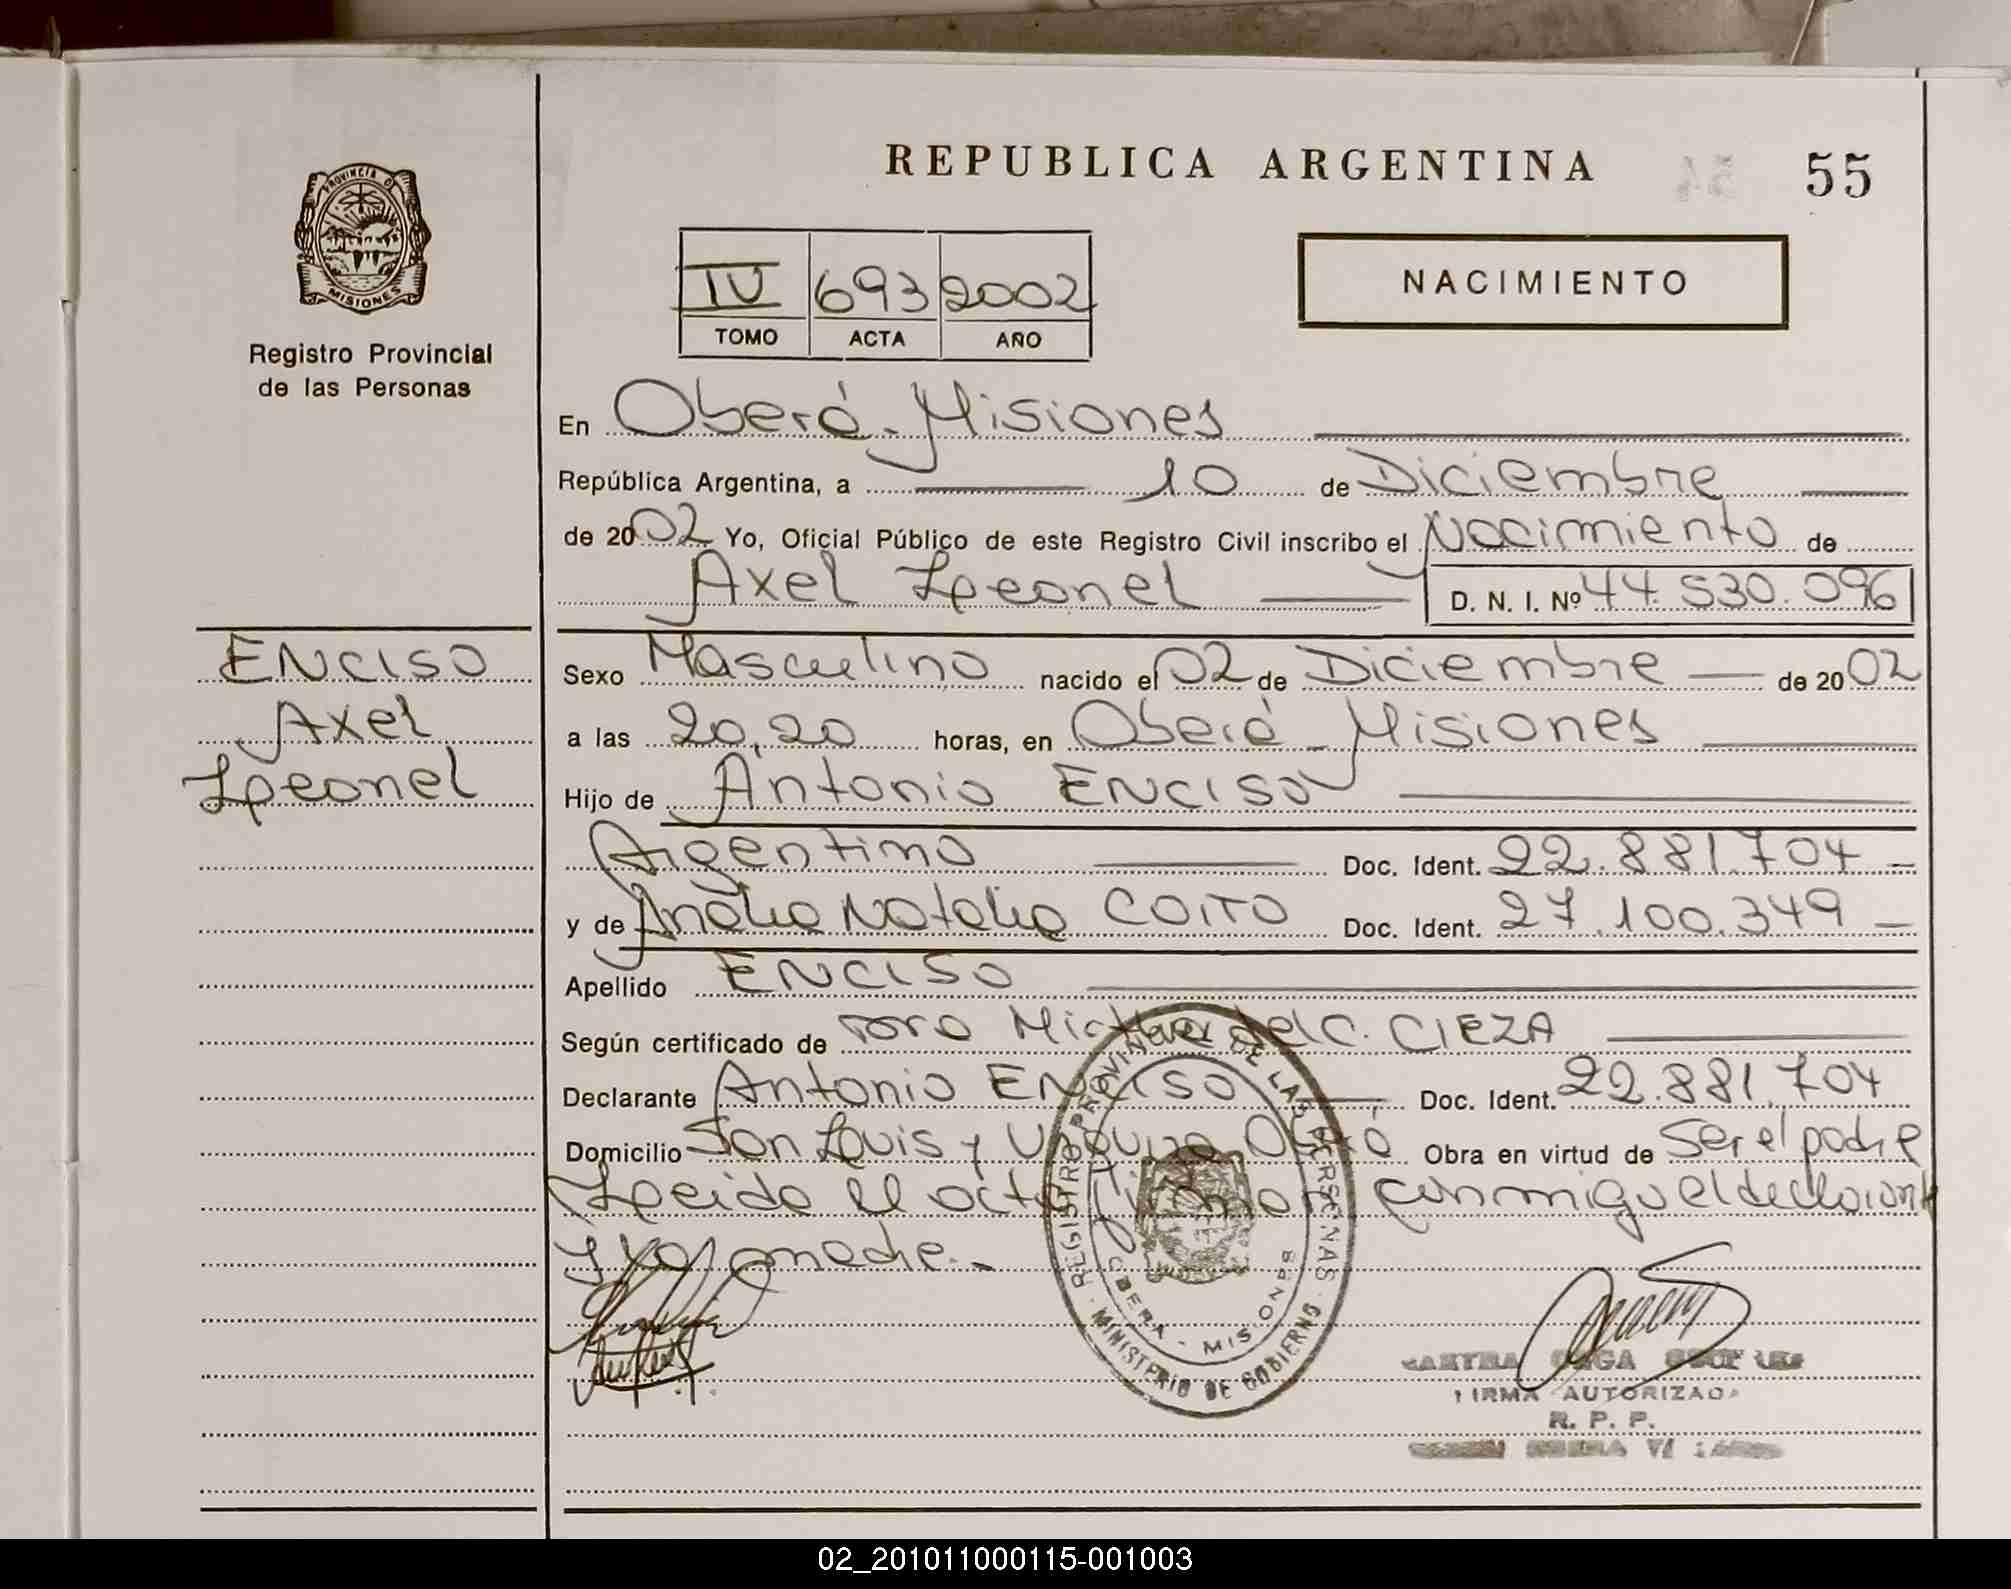 REPUBLICA ARGENTINA
55
PROVINCIA D
MISIONES
Registro Provincial
de las Personas
IV 693 2002
TOMO ACTA AÑO
NACIMIENTO
En Oberá - Misiones
República Argentina, a 10 de Diciembre
de 2002 Yo, Oficial Público de este Registro Civil inscribo el Nacimiento de
Axel Leonel D. N. I. Nº 44.530.096
ENCISO
Axel
Leonel
Sexo Masculino nacido el 02 de Diciembre de 2002
a las 20,20 horas, en Oberá - Misiones
Hijo de Antonio ENCISO
Argentino Doc. Ident. 22.881.704
y de Analia Natalia COITO Doc. Ident. 27.100.349
Apellido ENCISO
Según certificado de del C. CIEZA
Declarante Antonio ENCISO Doc. Ident. 22.881.704
Domicilio San Louis y Urquiza Oberá Obra en virtud de Ser el padre
Leida el acta firman conmigo el declarante
y la madre.-
REGISTRO PROVINCIAL DE LAS PERSONAS
MINISTERIO DE GOBIERNO
OBERA - MISIONES
FIRMA AUTORIZADA
R. P. P.
02_201011000115-001003